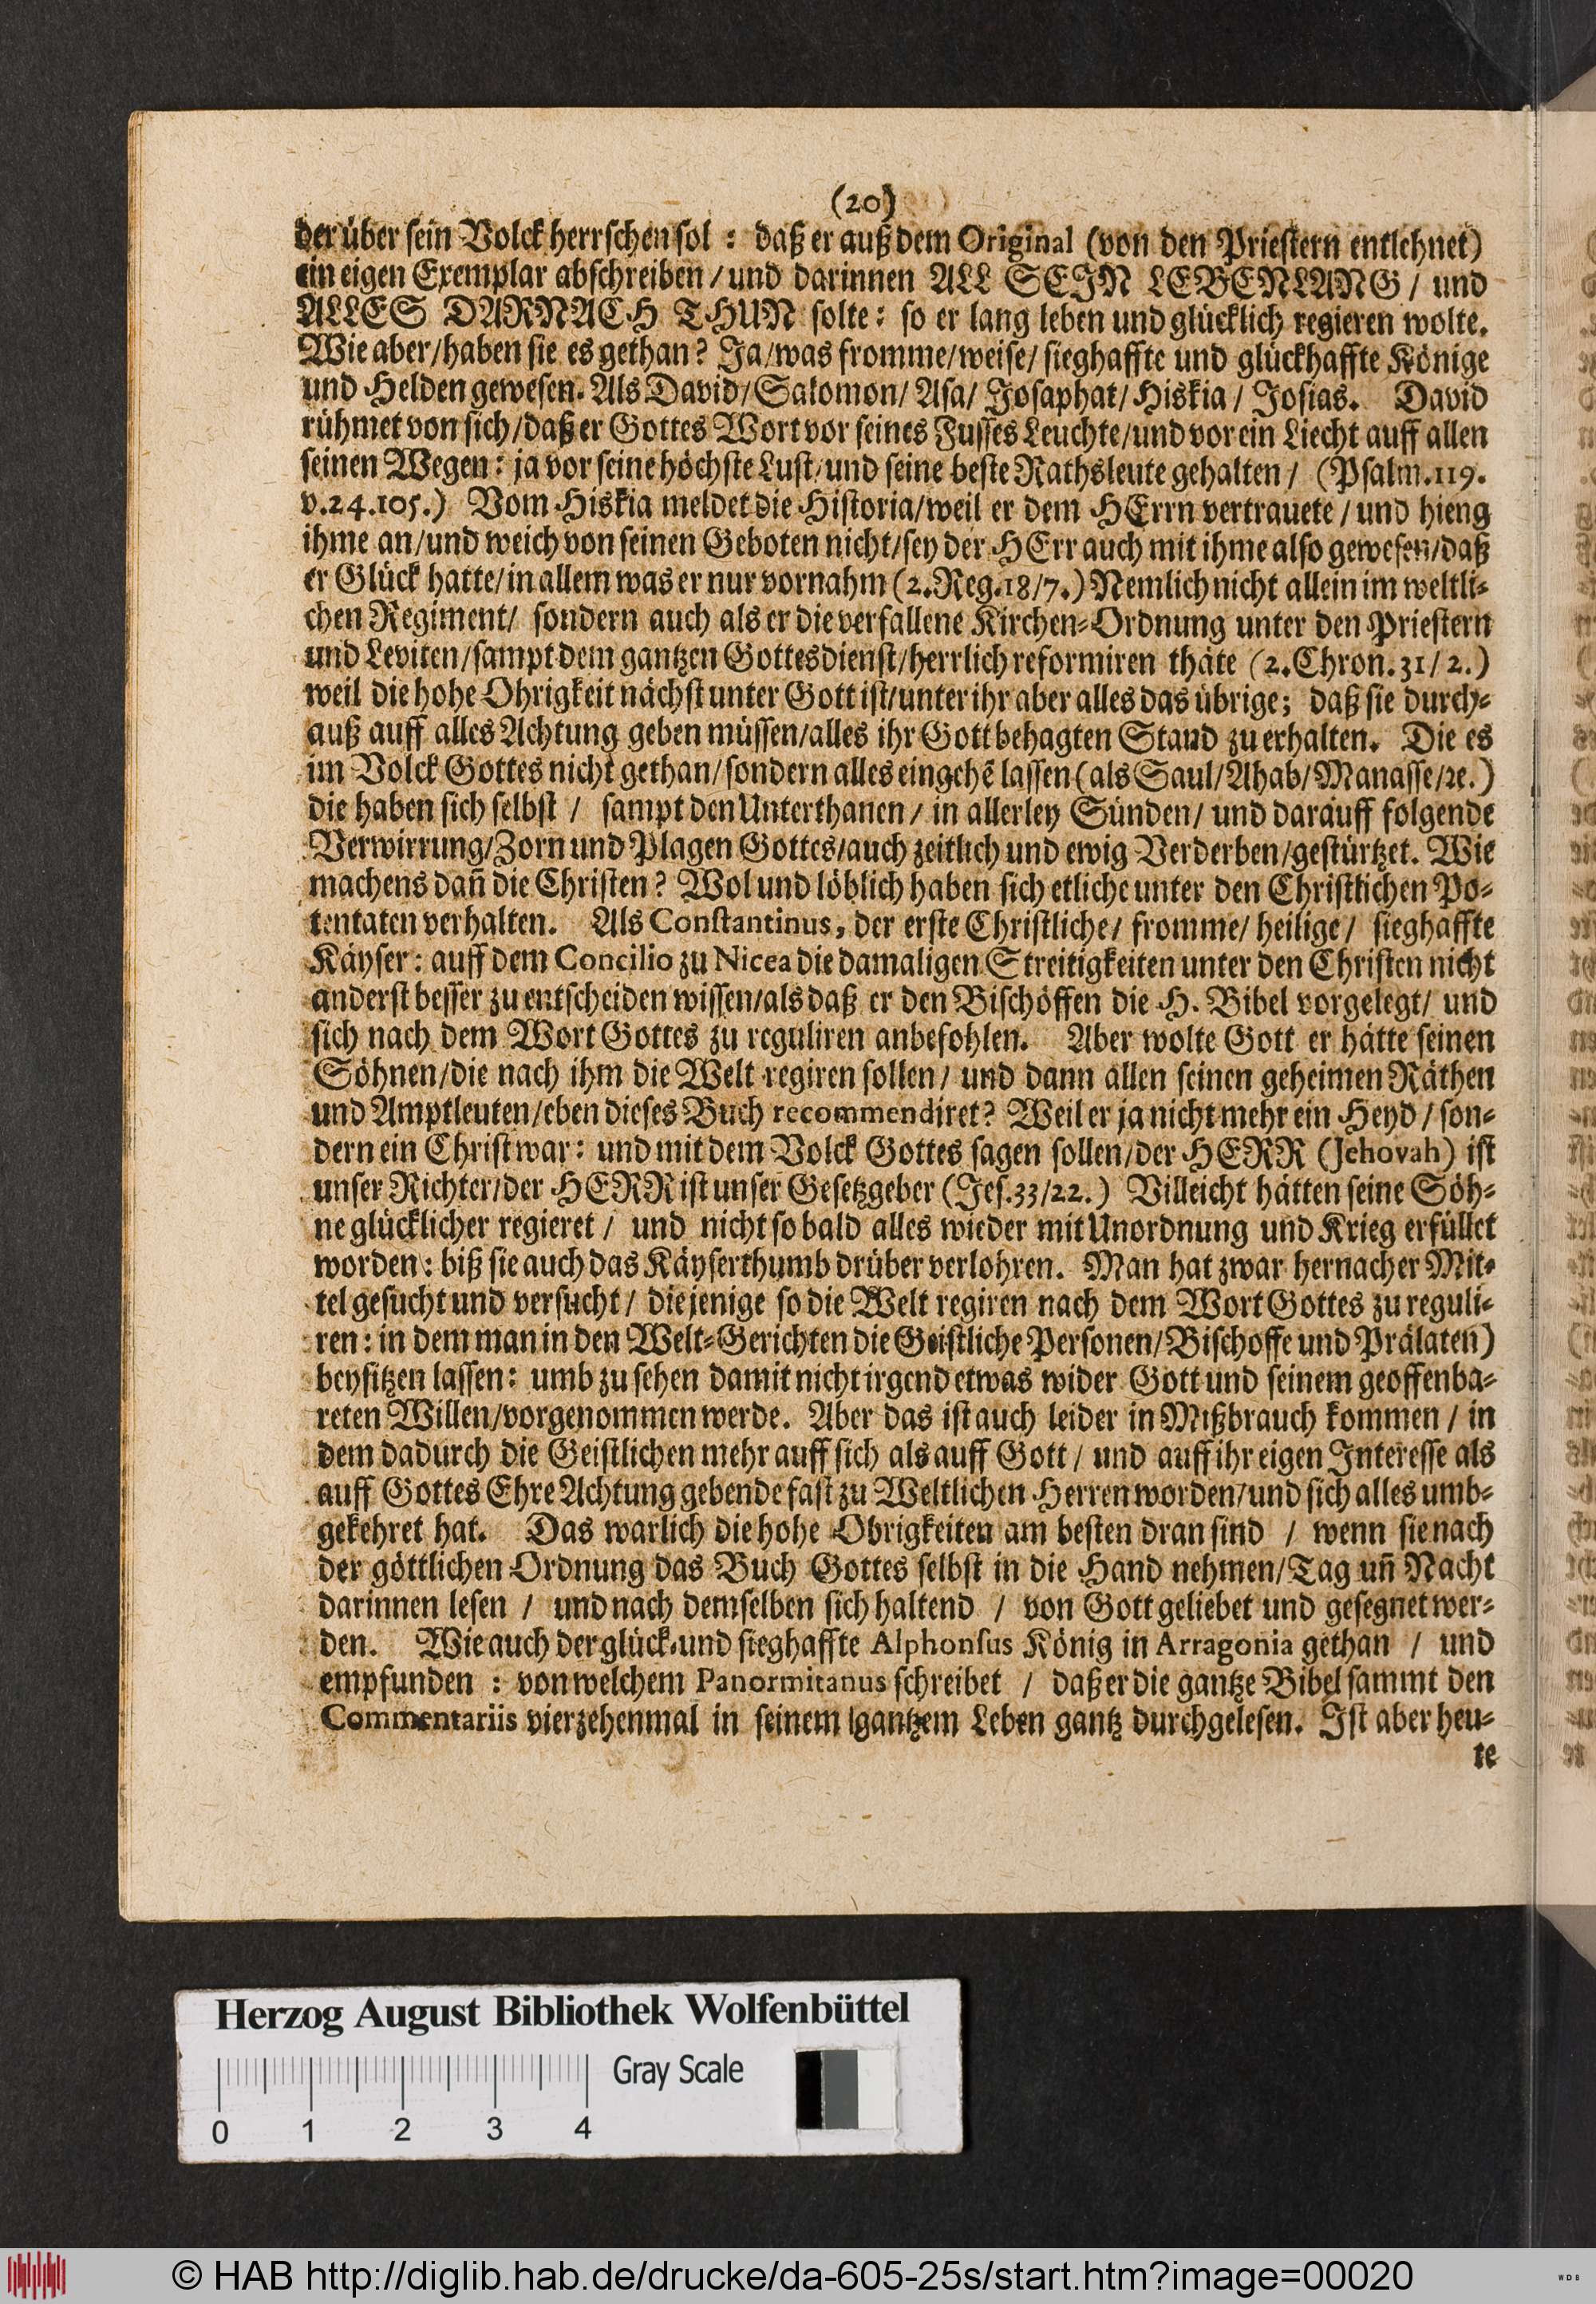 (20)
der über sein Volck herrschen sol : daß er auß dem Original (von den Priestern entlehnet)
ein eigen Exemplar abschreiben / und darinnen ALL SEIN LEBENLANG / und
ALLES DARNACH THUN solte : so er lang leben und glücklich regieren wolte.
Wie aber/haben sie es gethan? Ja/was fromme/weise/ sieghaffte und glückhaffte Könige
und Helden gewesen. Als David/Salomon/ Asa/ Josaphat/ Hiskia / Josias. David
rühmet von sich/daß er Gottes Wort vor seines Fusses Leuchte/und vor ein Liecht auff allen
seinen Wegen : ja vor seine höchste Lust/und seine beste Rathsleute gehalten / (Psalm.119.
v.24.105.) Vom Hiskia meldet die Historia/weil er dem HErrn vertrauete / und hieng
ihme an/und weich von seinen Geboten nicht/sey der HErr auch mit ihme also gewesen/daß
er Glück hatte/in allem was er nur vornahm (2.Reg.18/7.) Nemlich nicht allein im weltli-
chen Regiment/ sondern auch als er die verfallene Kirchen-Ordnung unter den Priestern
und Leviten/sampt dem gantzen Gottesdienst/herrlich reformiren thäte (2.Chron.31/2.)
weil die hohe Ohrigkeit nächst unter Gott ist/unter ihr aber alles das übrige; daß sie durch-
auß auff alles Achtung geben müssen/alles ihr Gott behagten Stand zu erhalten. Die es
im Volck Gottes nicht gethan/sondern alles eingehē lassen (als Saul/Ahab/Manasse/ꝛc.)
die haben sich selbst / sampt den Unterthanen / in allerley Sünden/ und darauff folgende
Verwirrung/Zorn und Plagen Gottes/auch zeitlich und ewig Verderben/gestürtzet. Wie
machens dañ die Christen? Wol und löblich haben sich etliche unter den Christlichen Po-
tentaten verhalten. Als Constantinus, der erste Christliche/ fromme/ heilige / sieghaffte
Käyser : auff dem Concilio zu Nicea die damaligen Streitigkeiten unter den Christen nicht
anderst besser zu entscheiden wissen/als daß er den Bischöffen die H. Bibel vorgelegt/ und
sich nach dem Wort Gottes zu reguliren anbefohlen. Aber wolte Gott er hätte seinen
Söhnen/die nach ihm die Welt regiren sollen / und dann allen seinen geheimen Räthen
und Amptleuten/eben dieses Buch recommendiret? Weil er ja nicht mehr ein Heyd / son-
dern ein Christ war : und mit dem Volck Gottes sagen sollen/der HERR (Jehovah) ist
unser Richter/der HERR ist unser Gesetzgeber (Jes.33/22.) Villeicht hätten seine Söh-
ne glücklicher regieret / und nicht so bald alles wieder mit Unordnung und Krieg erfüllet
worden : biß sie auch das Käyserthumb drüber verlohren. Man hat zwar hernacher Mit-
tel gesucht und versucht / diejenige so die Welt regiren nach dem Wort Gottes zu reguli-
ren : in dem man in den Welt-Gerichten die Geistliche Personen/Bischoffe und Prälaten)
beysitzen lassen : umb zu sehen damit nicht irgend etwas wider Gott und seinem geoffenba-
reten Willen/vorgenommen werde. Aber das ist auch leider in Mißbrauch kommen / in
dem dadurch die Geistlichen mehr auff sich als auff Gott / und auff ihr eigen Interesse als
auff Gottes Ehre Achtung gebende fast zu Weltlichen Herren worden/und sich alles umb-
gekehret hat. Das warlich die hohe Obrigkeiten am besten dran sind / wenn sie nach
der göttlichen Ordnung das Buch Gottes selbst in die Hand nehmen/Tag uñ Nacht
darinnen lesen / und nach demselben sich haltend / von Gott geliebet und gesegnet wer-
den. Wie auch der glück-und sieghaffte Alphonsus König in Arragonia gethan / und
empfunden : von welchem Panormitanus schreibet / daß er die gantze Bibel sammt den
Commentariis vierzehenmal in seinem gantzem Leben gantz durchgelesen. Ist aber heu-
te
Herzog August Bibliothek Wolfenbüttel
Gray Scale
0 1 2 3 4
© HAB http://diglib.hab.de/drucke/da-605-25s/start.htm?image=00020
WDB